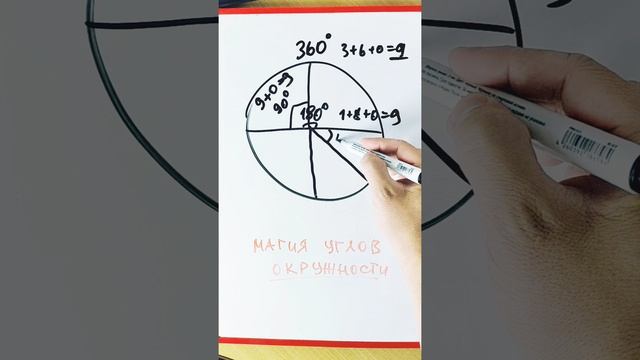 360° 3+6+0=9
9+0=9
90°
180° 1+8+0=9
4
МАГИЯ УГЛОВ
ОКРУЖНОСТИ